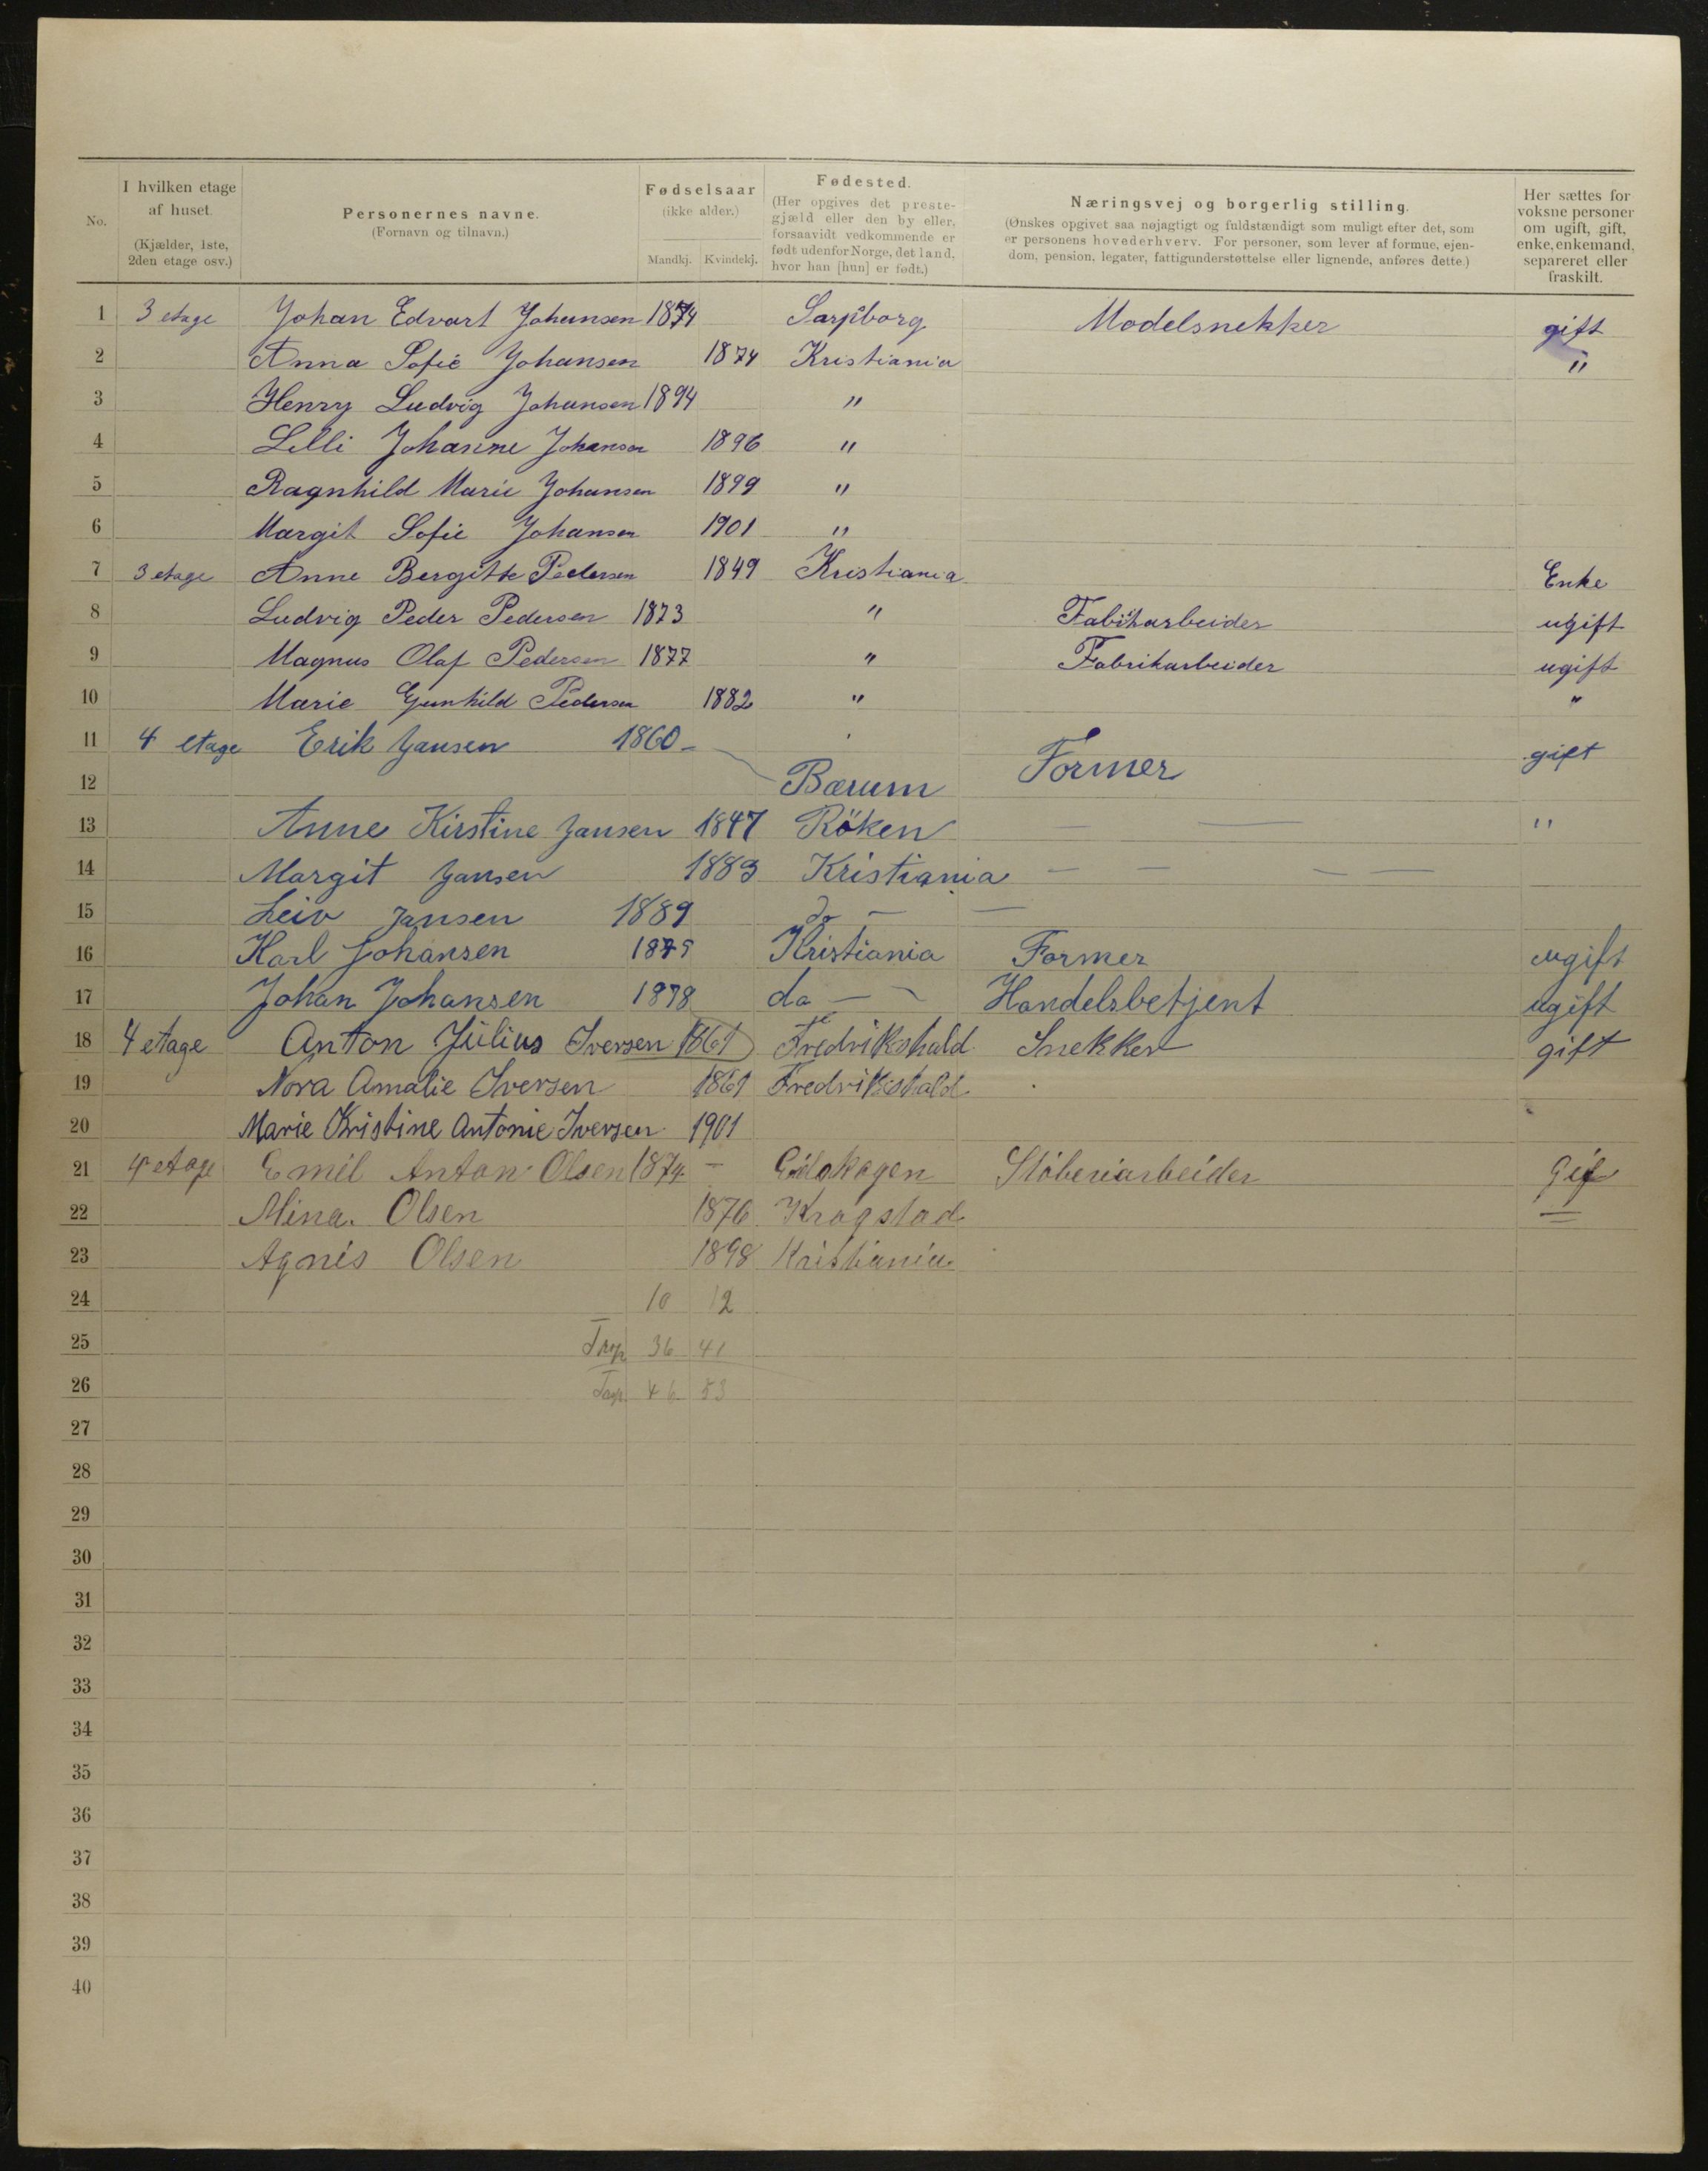 No.
I hvilken etage af huset.
(Kjælder, 1ste, 2den etage osv.)
Personernes navne.
(Fornavn og tilnavn.)
Fødselsaar
(ikke alder.)
Mandkj. Kvindekj.
Fødested.
(Her opgives det prestegjæld eller den by eller, forsaavidt vedkommende er født udenfor Norge, det land, hvor han [hun] er født.)
Næringsvej og borgerlig stilling.
(Ønskes opgivet saa nøjagtigt og fuldstændigt som muligt efter det, som er personens hovederhverv. For personer, som lever af formue, ejendom, pension, legater, fattigunderstøttelse eller lignende, anføres dette.)
Her sættes for voksne personer om ugift, gift, enke, enkemand, separeret eller fraskilt.
1 3 etage Johan Edvart Johansen 1874 Sarpsborg Modelsnekker gift
2 Anna Sofie Johansen 1874 Kristiania "
3 Henry Ludvig Johansen 1894 "
4 Lilli Johanne Johansen 1896 "
5 Ragnhild Marie Johansen 1899 "
6 Margit Sofie Johansen 1901 "
7 3 etage Anne Bergitte Pedersen 1849 Kristiania Enke
8 Ludvig Peder Pedersen 1873 " Fabrikarbeider ugift
9 Magnus Olaf Pedersen 1877 " Fabrikarbeider ugift
10 Marie Gunhild Pedersen 1882 " "
11 4 etage Erik Jansen 1860 - gift
12 Bærum Former
13 Anne Kirstine Jansen 1847 Röken — — "
14 Margit Jansen 1883 Kristiania — — — —
15 Leiv Jansen 1889 do — —
16 Karl Johansen 1875 Kristiania Former ugift
17 Johan Johansen 1878 do — - Handelsbetjent ugift
18 4 etage Anton Julius Iversen 1861 Fredrikshald Snekker gift
19 Nora Amalie Iversen 1861 Fredrikshald
20 Marie Kristine Antonie Iversen 1901
21 4 etage Emil Anton Olsen 1874 - Stöberiarbeider Gif
22 Mina. Olsen 1876 Kragstad =
23 Agnes Olsen 1898 Kristiania
24 10 12
25 36 41
26 46 53
27
28
29
30
31
32
33
34
35
36
37
38
39
40